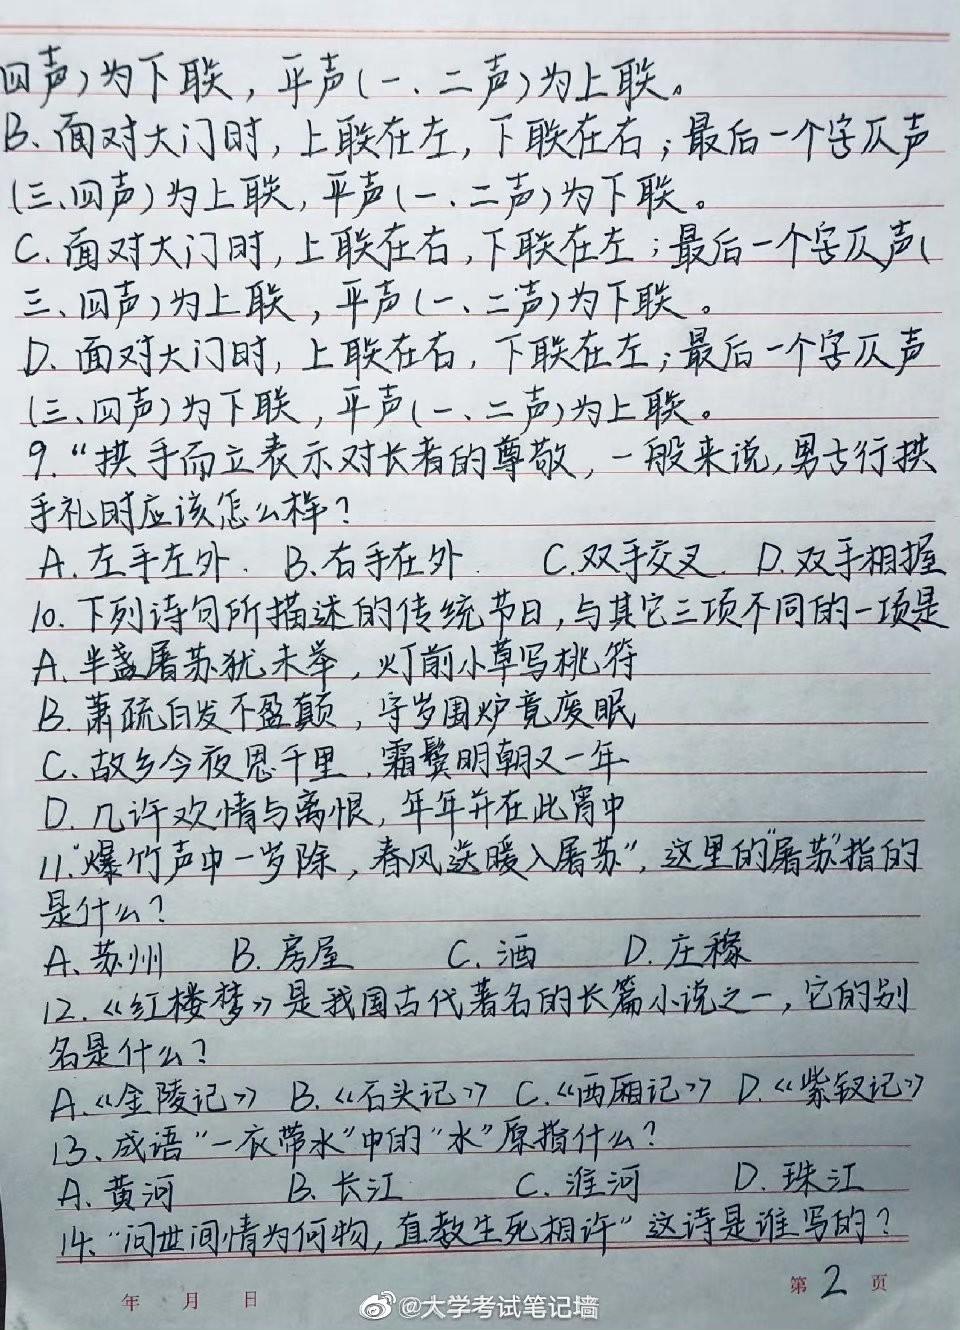 四声)为下联，平声(一、二声)为上联。
B. 面对大门时，上联在左，下联在右；最后一个字仄声
(三、四声)为上联，平声(一、二声)为下联。
C. 面对大门时，上联在右，下联在左；最后一个字仄声(
三、四声)为上联，平声(一、二声)为下联。
D. 面对大门时，上联在右，下联在左；最后一个字仄声
(三、四声)为下联，平声(一、二声)为上联。
9. “拱手而立表示对长者的尊敬，一般来说，男士行拱
手礼时应该怎么样？
A. 左手左外. B. 右手在外. C. 双手交叉. D. 双手相握
10. 下列诗句所描述的传统节日，与其它三项不同的一项是
A. 半盏屠苏犹未举，灯前小草写桃符
B. 萧疏白发不盈颠，守岁围炉竟废眠
C. 故乡今夜思千里，霜鬓明朝又一年
D. 几许欢情与离恨，年年并在此宵中
11. “爆竹声中一岁除，春风送暖入屠苏”，这里的“屠苏”指的
是什么？
A. 苏州 B. 房屋 C. 酒 D. 庄稼
12. 《红楼梦》是我国古代著名的长篇小说之一，它的别
名是什么？
A. 《金陵记》 B. 《石头记》 C. 《西厢记》 D. 《紫钗记》
13、成语“一衣带水”中的“水”原指什么？
A. 黄河 B. 长江 C. 淮河 D. 珠江
14、“问世间情为何物，直教生死相许”这诗是谁写的？
年 月 日 第 2 页
@大学考试笔记墙